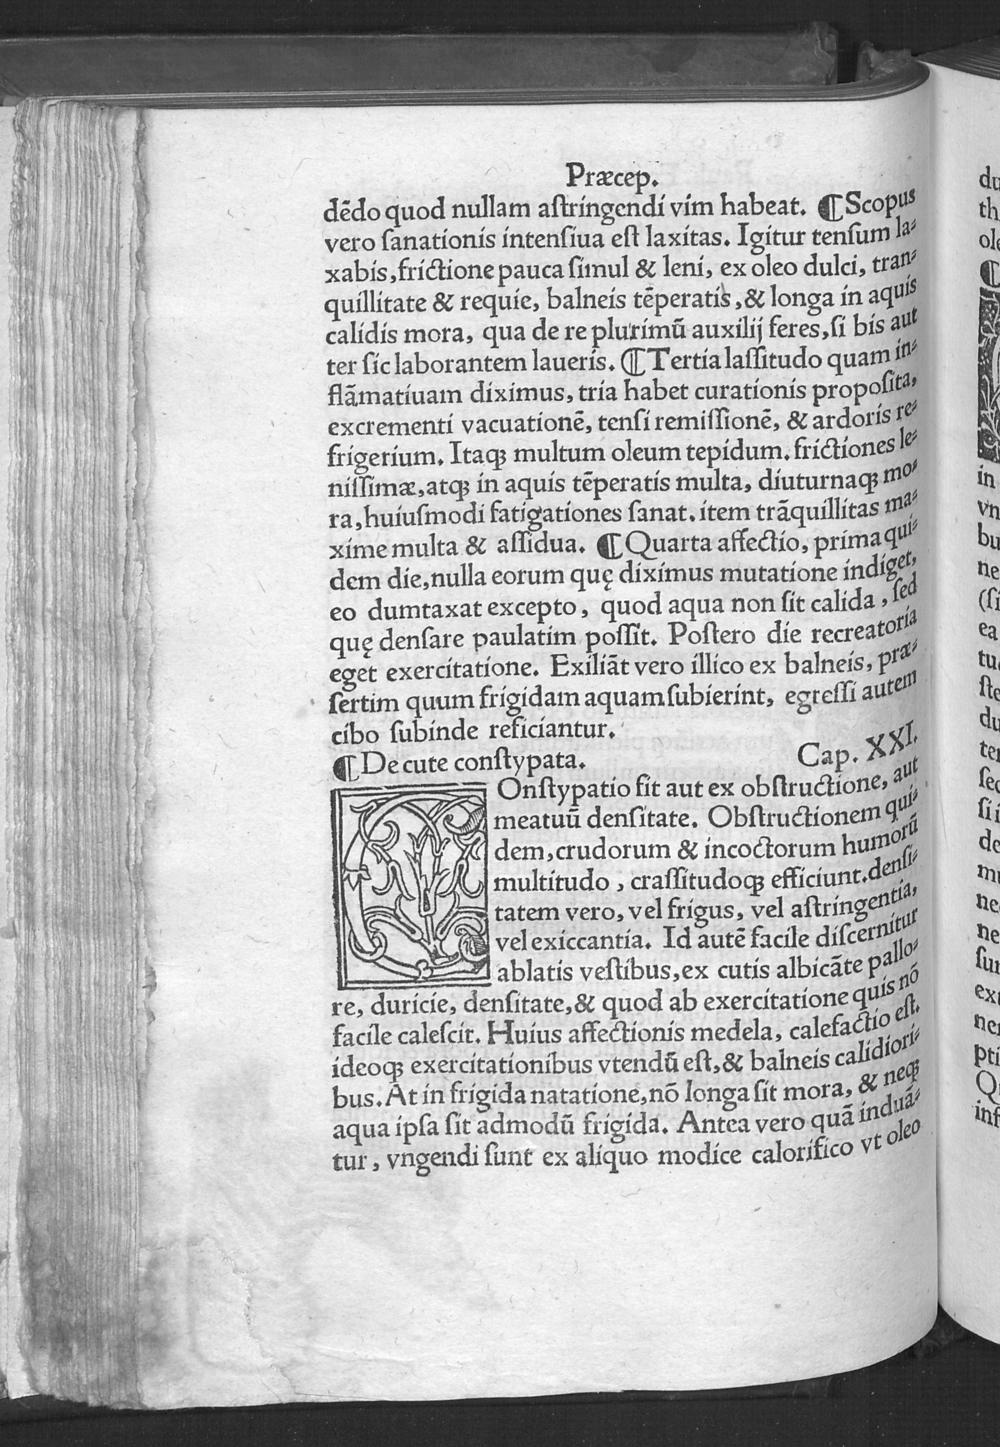 Præcep.
dēdo quod nullam aſtringendi vim habeat. ¶ Scopus
vero ſanationis intenſiua eſt laxitas. Igitur tenſum la⸗
xabis, frictione pauca ſimul & leni, ex oleo dulci, tran⸗
quillitate & requie, balneis tēperatis, & longa in aquis
calidis mora, qua de re plurimū auxilij feres, ſi bis aut
ter ſic laborantem laueris. ¶ Tertia laſſitudo quam in⸗
flāmatiuam diximus, tria habet curationis propoſita,
excrementi vacuationē, tenſi remiſſionē, & ardoris re⸗
frigerium. Itaqꝫ multum oleum tepidum. frictiones le⸗
niſſimæ, atqꝫ in aquis tēperatis multa, diuturnaqꝫ mo⸗
ra, huiuſmodi fatigationes ſanat. item trāquillitas ma⸗
xime multa & aſſidua. ¶ Quarta affectio, prima qui⸗
dem die, nulla eorum quę diximus mutatione indiget,
eo dumtaxat excepto, quod aqua non ſit calida, ſed
quę denſare paulatim poſſit. Poſtero die recreatoria
eget exercitatione. Exiliāt vero illico ex balneis, præ⸗
ſertim quum frigidam aquam ſubierint, egreſſi autem
cibo ſubinde reficiantur.
¶ De cute conſtypata. Cap. XXI.
COnſtypatio fit aut ex obſtructione, aut
meatuū denſitate. Obſtructionem qui⸗
dem, crudorum & incoctorum humorū
multitudo, craſſitudoqꝫ efficiunt. denſi⸗
tatem vero, vel frigus, vel aſtringentia,
vel exiccantia. Id autē facile diſcernitur
ablatis veſtibus, ex cutis albicāte pallo⸗
re, duricie, denſitate, & quod ab exercitatione quis nō
facile caleſcit. Huius affectionis medela, calefactio eſt.
ideoqꝫ exercitationibus vtendū eſt, & balneis calidiori⸗
bus. At in frigida natatione, nō longa ſit mora, & neqꝫ
aqua ipſa ſit admodū frigida. Antea vero quā induā⸗
tur, vngendi ſunt ex aliquo modice calorifico vt oleo